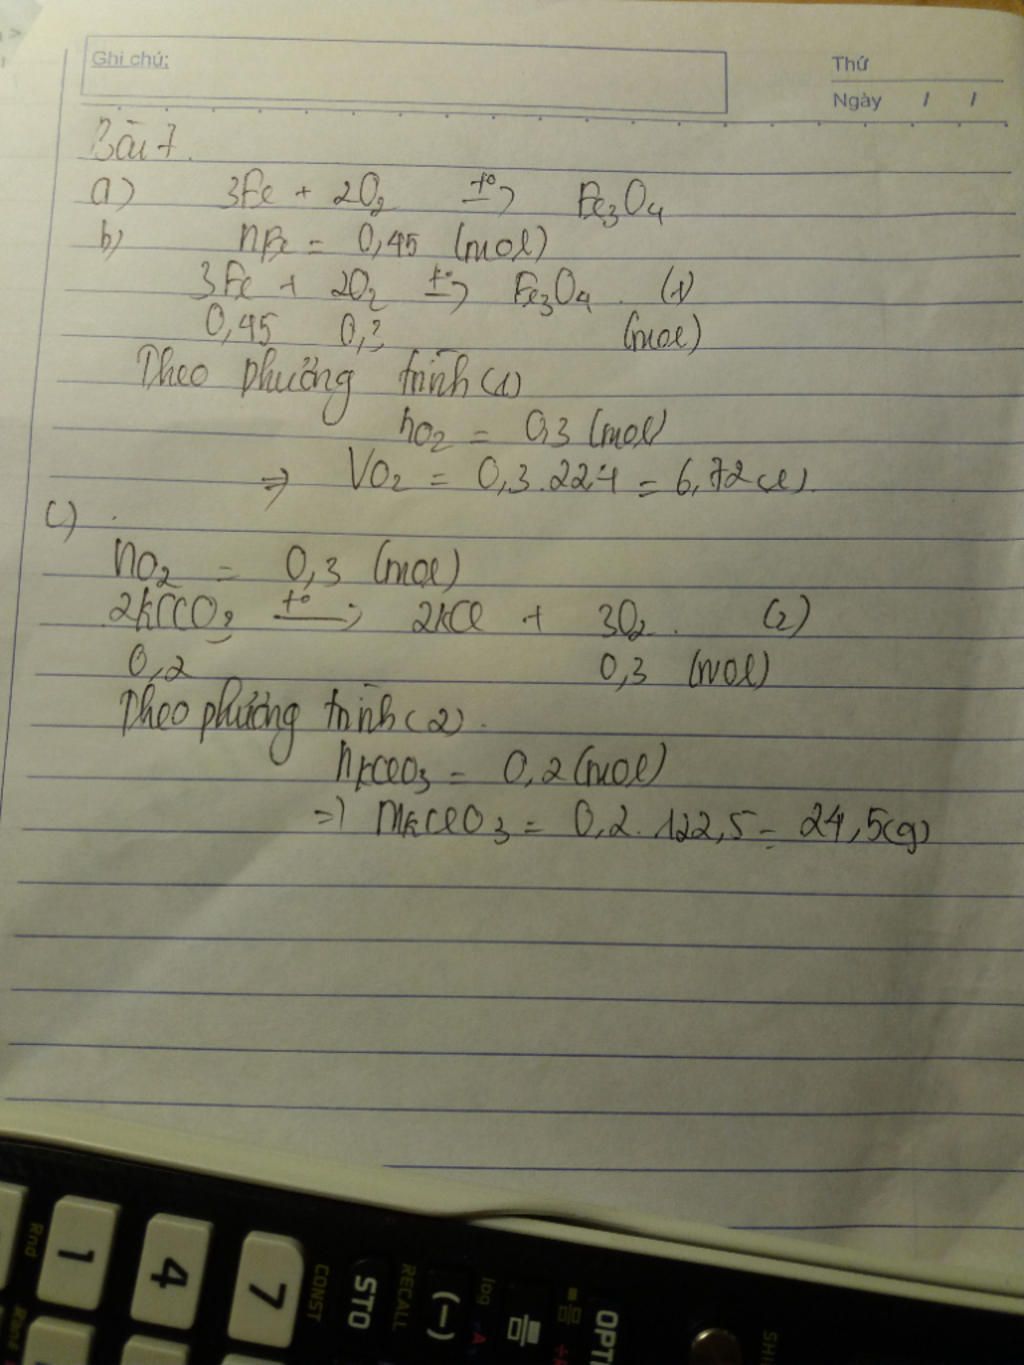 Ghi chú:
Thứ
Ngày / /
Bài 7.
a) 3Fe + 2O2 t°→ Fe3O4
b) nFe = 0,45 (mol)
3Fe + 2O2 t°→ Fe3O4 (1)
0,45 0,3 (mol)
Theo phương trình (1)
nO2 = 0,3 (mol)
=> VO2 = 0,3.22,4 = 6,72 (l).
c)
nO2 = 0,3 (mol)
2KClO3 t°→ 2KCl + 3O2. (2)
0,2 0,3 (mol)
Theo phương trình (2).
nKClO3 = 0,2 (mol)
=> mKClO3 = 0,2.122,5 = 24,5 (g)
Rnd
1
4
7
CONST
STO
RECALL
(-)
log
A
OPT
SHI
Ran#